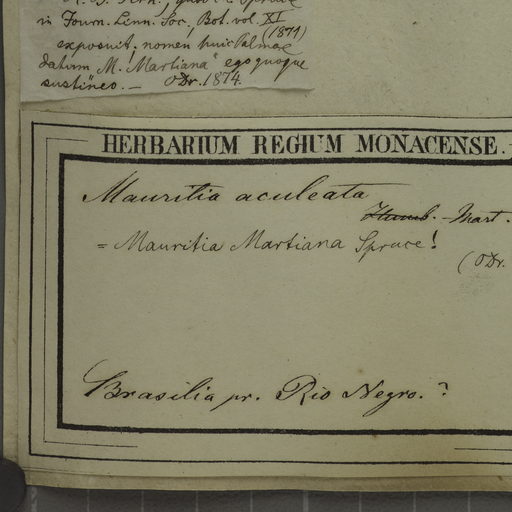 in Journ. Linn. Soc., Bot. vol. XI
(1871)
exposuit; nomen huic Palmae
datum „M. Martiana“ ego quoque
sustineo. — ODr. 1874.
HERBARIUM REGIUM MONACENSE.
Mauritia aculeata
Humb. - Mart.
= Mauritia Martiana Spruce!
(ODr.
Brasilia pr. Rio Negro.?